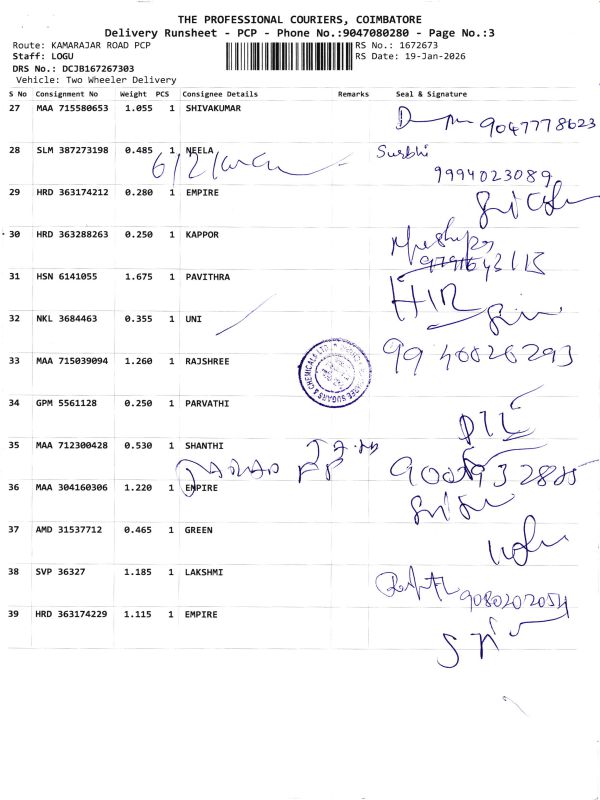 THE PROFESSIONAL COURIERS, COIMBATORE
Delivery Runsheet - PCP - Phone No.:9047080280 - Page No.:3
Route: KAMARAJAR ROAD PCP
RS No.: 1672673
Staff: LOGU
RS Date: 19-Jan-2026
DRS No.: DCJB167267303
Vehicle: Two Wheeler Delivery
S No Consignment No Weight PCS Consignee Details Remarks Seal & Signature
27 MAA 715580653 1.055 1 SHIVAKUMAR
9047778623
28 SLM 387273198 0.485 1 NEELA
Surbhi
9994023089
29 HRD 363174212 0.280 1 EMPIRE
30 HRD 363288263 0.250 1 KAPPOR
31 HSN 6141055 1.675 1 PAVITHRA
32 NKL 3684463 0.355 1 UNI
33 MAA 715039094 1.260 1 RAJSHREE
9940026293
34 GPM 5561128 0.250 1 PARVATHI
35 MAA 712300428 0.530 1 SHANTHI
36 MAA 304160306 1.220 1 EMPIRE
37 AMD 31537712 0.465 1 GREEN
38 SVP 36327 1.185 1 LAKSHMI
9080202054
39 HRD 363174229 1.115 1 EMPIRE